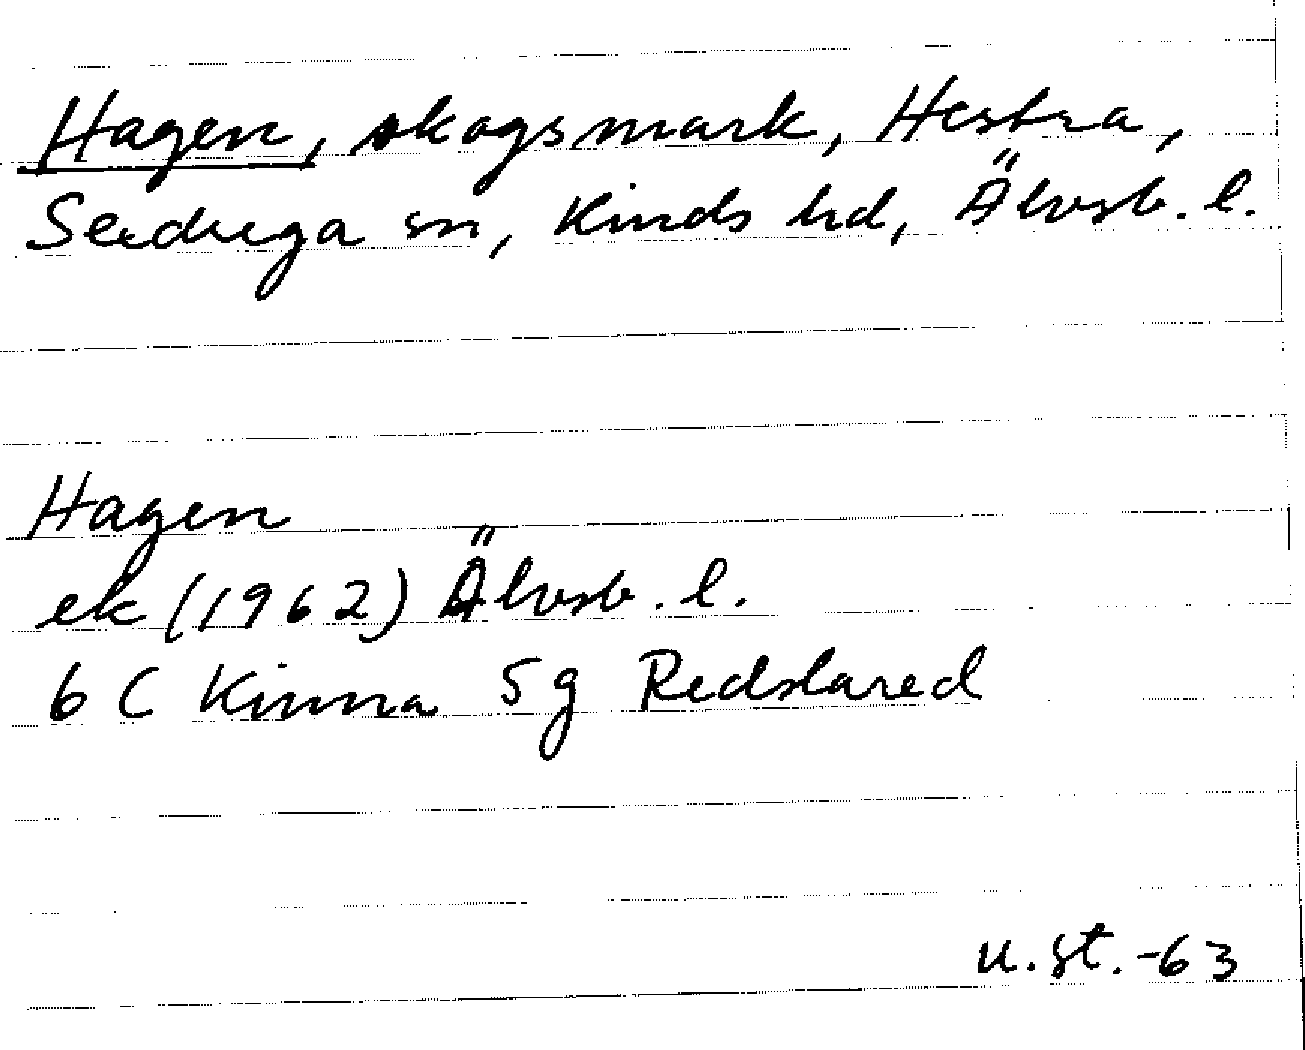 Hagen, skogsmark, Hestra,
Sexdrega sn, Kinds hd, Älvsb. l.
Hagen
ek (1962) Älvsb. l.
6 C Kinna 5 g Redslared
u. st. -63